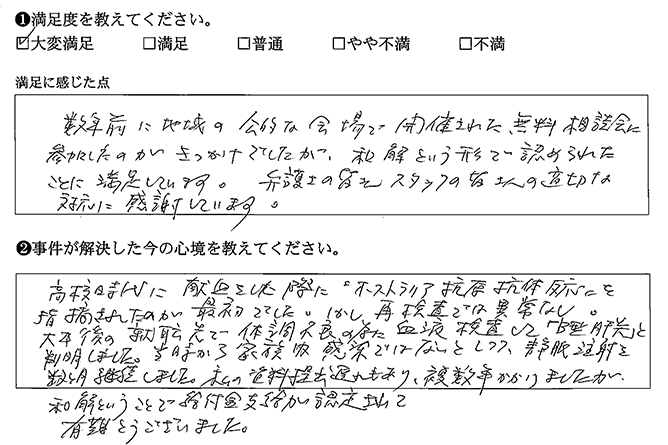 ❶満足度を教えてください。
☑大変満足 □満足 □普通 □やや不満 □不満
満足に感じた点
数年前に地域の公的な会場で開催された無料相談会に
参加したのがきっかけでしたが、和解という形で認められた
ことに満足しています。弁護士の皆さん スタッフの皆さんの適切な
対応に感謝しています。
❷事件が解決した今の心境を教えてください。
高校時代に献血をした際に「オーストラリア抗原抗体反応」を
指摘されたのが最初でした。しかし再検査では異常なし。
大卒後の就職先で体調不良の為 血液検査して「B型肝炎」と
判明しました。当時から家族内感染ではないとして、静脈注射を
数ヶ月継続しました。私の資料提出遅れもあり、複数年かかりましたが、
和解ということで給付金支給が認定されて
有難とうございました。